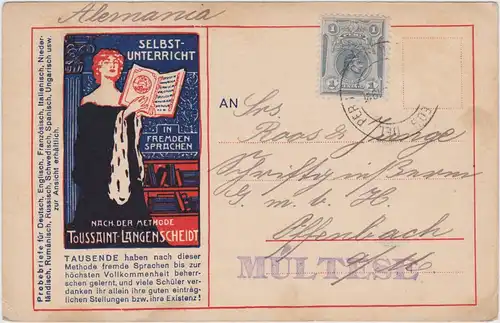 Alemania
Probebriefe für Deutsch, Englisch, Französisch, Italienisch, Nieder-
ländisch, Rumänisch, Russisch, Schwedisch, Spanisch, Ungarisch usw.
zur Ansicht erhältlich.
SELBST-
UNTERRICHT
IN
FREMDEN
SPRACHEN
NACH DER METHODE
TOUSSAINT-LANGENSCHEIDT
TAUSENDE haben nach dieser
Methode fremde Sprachen bis zur
höchsten Vollkommenheit beherr-
schen gelernt, und viele Schüler ver-
danken ihr allein ihre guten einträg-
lichen Stellungen bzw. ihre Existenz!
1 1
AN
Srs.
Roos & Junge
Schriftgiesserei
G. m. b. H.
Offenbach
a/M.
MULTESE